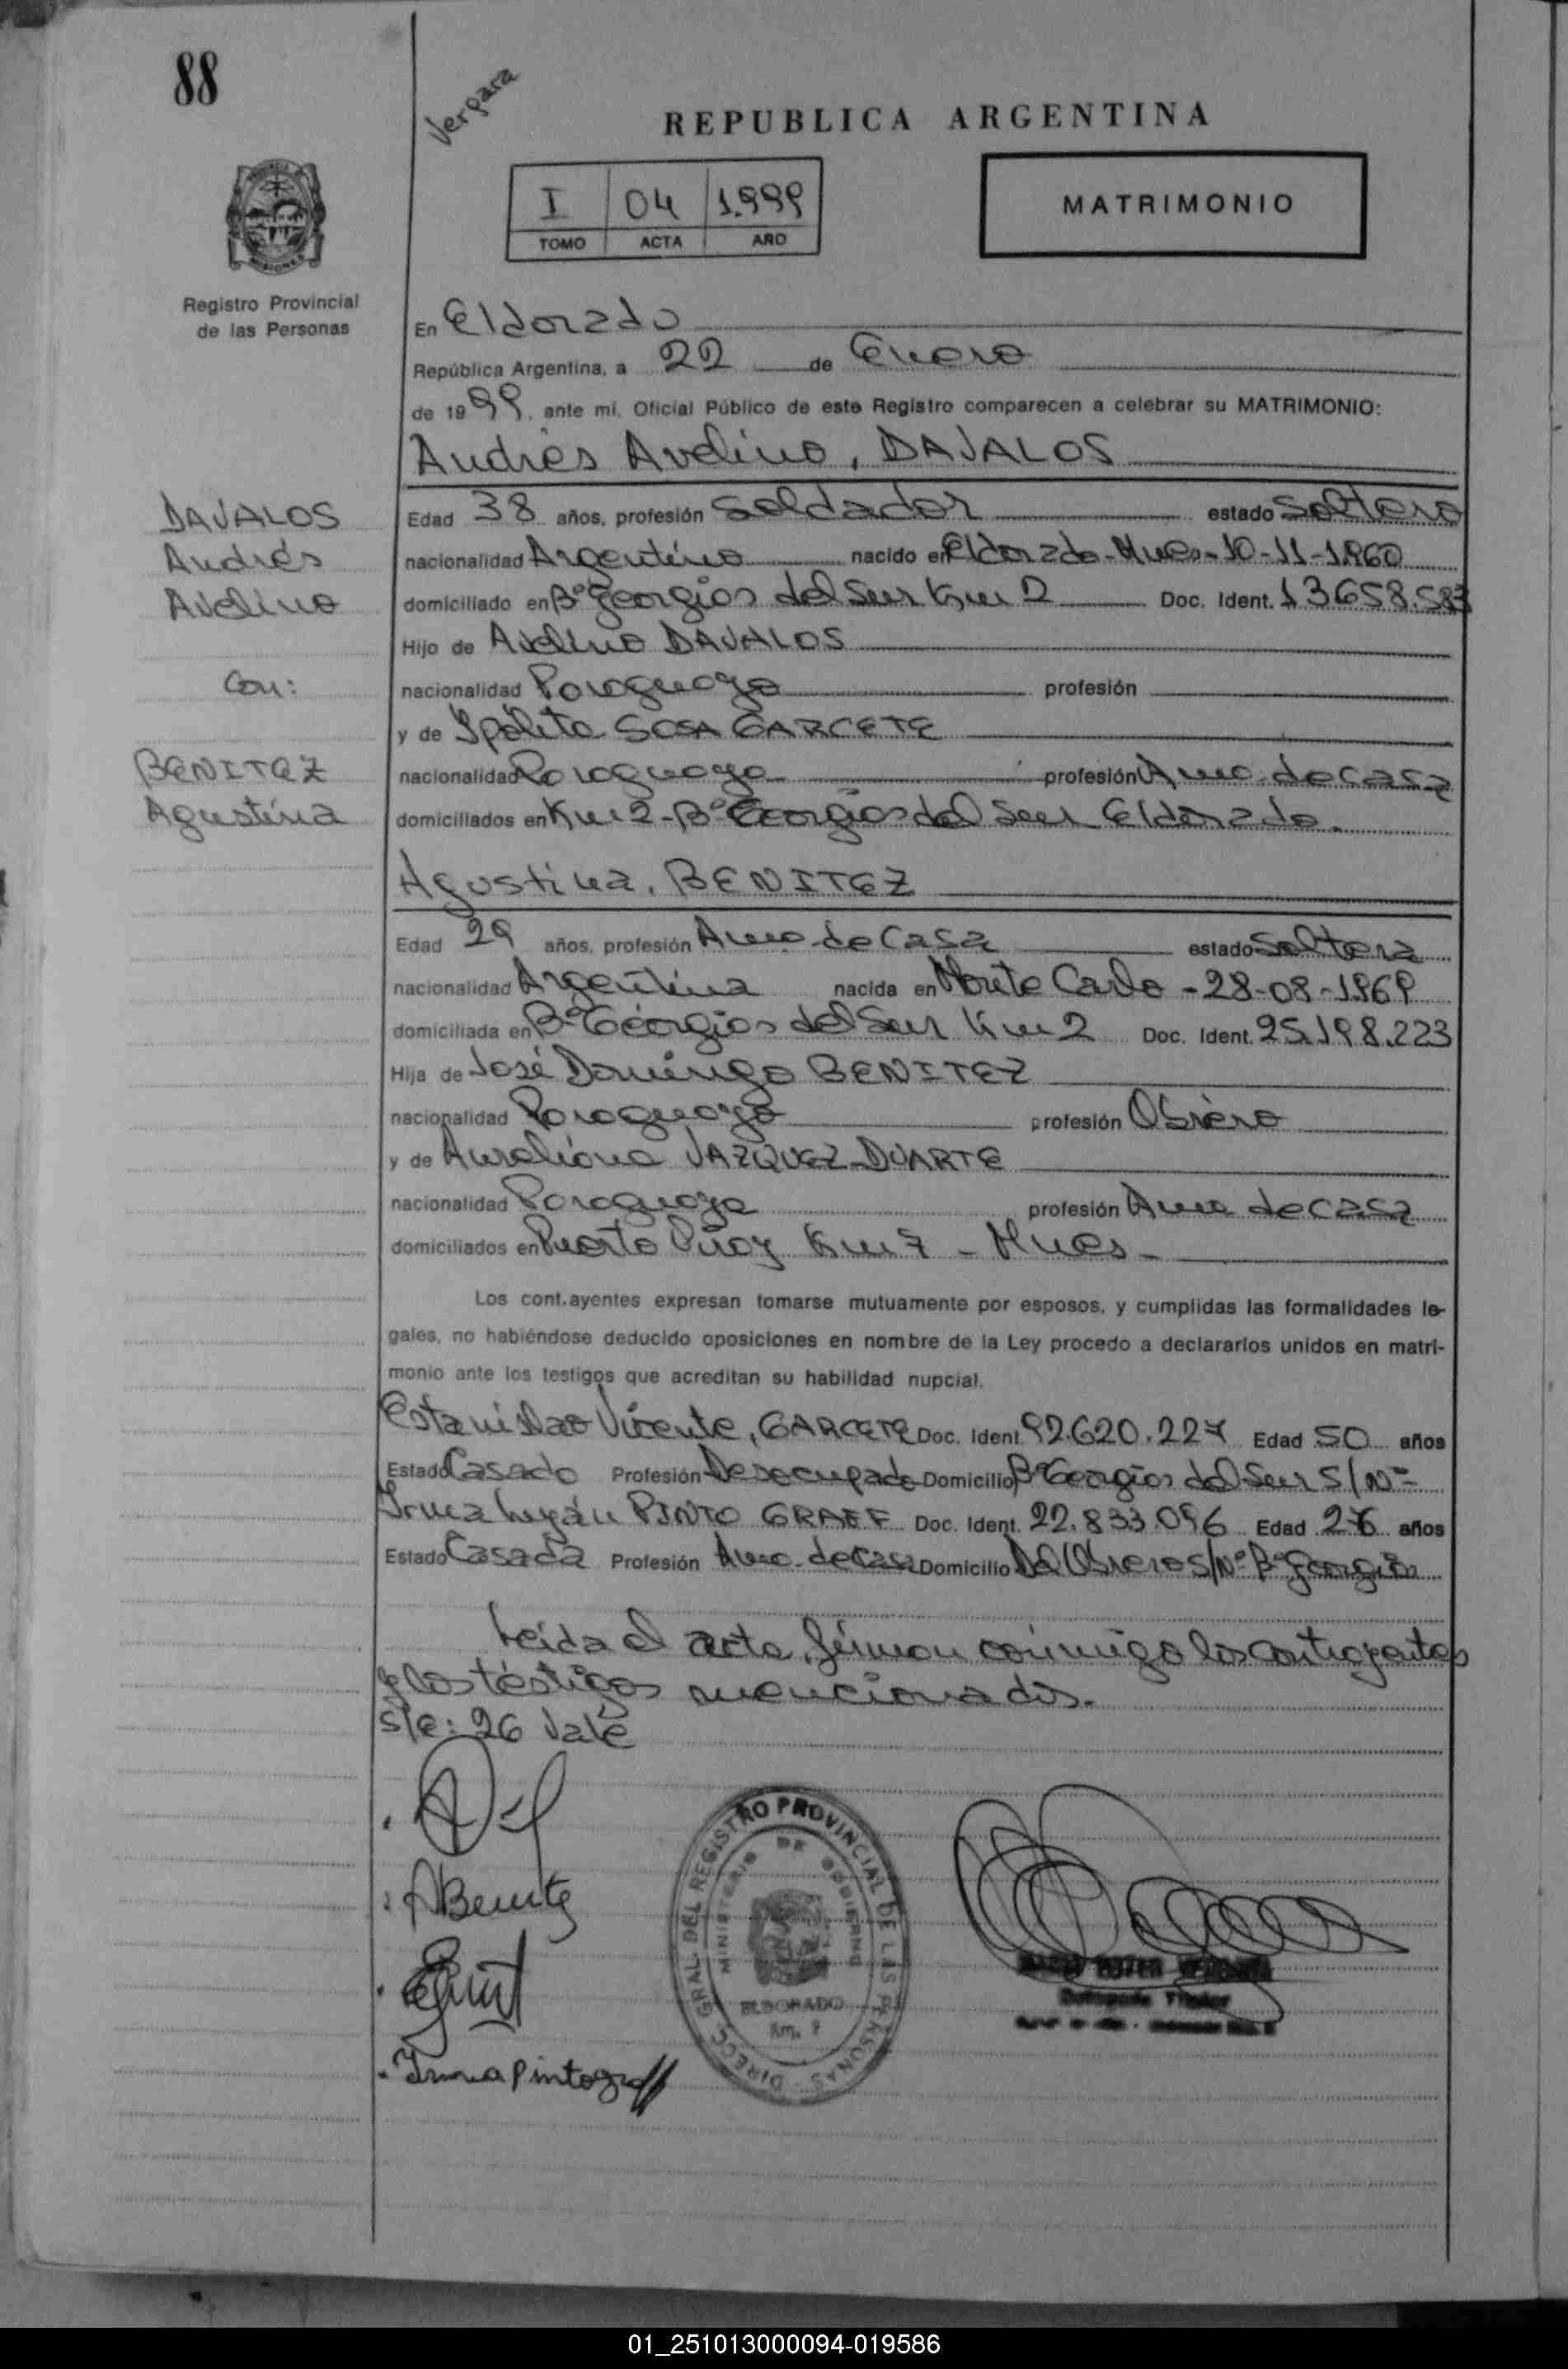 88
Vergara
REPUBLICA ARGENTINA
I 04 1.999
TOMO ACTA AÑO
MATRIMONIO
PROVINCIA DE
MISIONES
Registro Provincial
de las Personas
En Eldorado
República Argentina, a 22 de Enero
de 1999, ante mí, Oficial Público de este Registro comparecen a celebrar su MATRIMONIO:
Andrés Avelino, DAVALOS
DAVALOS
Andrés
Avelino
Con:
BENITEZ
Agustina
Edad 38 años, profesión Soldador estado Soltero
nacionalidad Argentino nacido en Eldorado-Mnes-10-11-1.960
domiciliado en Bº Georgios del Sur Km 2 Doc. Ident. 13.658.583
Hijo de Avelino DAVALOS
nacionalidad Paraguaya profesión
y de Ipólita SOSA GARCETE
nacionalidad Paraguaya profesión Ama de casa
domiciliados en Km 2-Bº Georgios del Sur Eldorado.
Agustina, BENITEZ
Edad 29 años, profesión Ama de Casa estado Soltera
nacionalidad Argentina nacida en Monte Carlo -28-08-1.969
domiciliada en Bº Georgios del Sur Km 2 Doc. Ident. 25.198.223
Hija de José Domingo BENITEZ
nacionalidad Paraguaya profesión Obrero
y de Aureliana VAZQUEZ DUARTE
nacionalidad Paraguaya profesión Ama de casa
domiciliados en Puerto Piray Km 7 - Mnes -
Los cont.ayentes expresan tomarse mutuamente por esposos, y cumplidas las formalidades le-
gales, no habiéndose deducido oposiciones en nombre de la Ley procedo a declararlos unidos en matri-
monio ante los testigos que acreditan su habilidad nupcial.
Estanislao Vicente, GARCETE Doc. Ident. 92.620.227 Edad 50 años
Estado Casado Profesión Desocupado Domicilio Bº Georgios del Sur S/Nº
Irma PINTO GRAEF Doc. Ident. 22.833.096 Edad 26 años
Estado Casada Profesión Ama de casa Domicilio Del Obrero S/Nº Bº Georgios
Leída el acta, firman conmigo los contrayentes
y los testigos mencionados.
S/e: 26 Vale
ABenitez
Irma Pinto graff
DIRECC. GRAL. DEL REGISTRO PROVINCIAL DE LAS PERSONAS
MINISTERIO DE GOBIERNO
ELDORADO
Km.
Titular
01_251013000094-019586